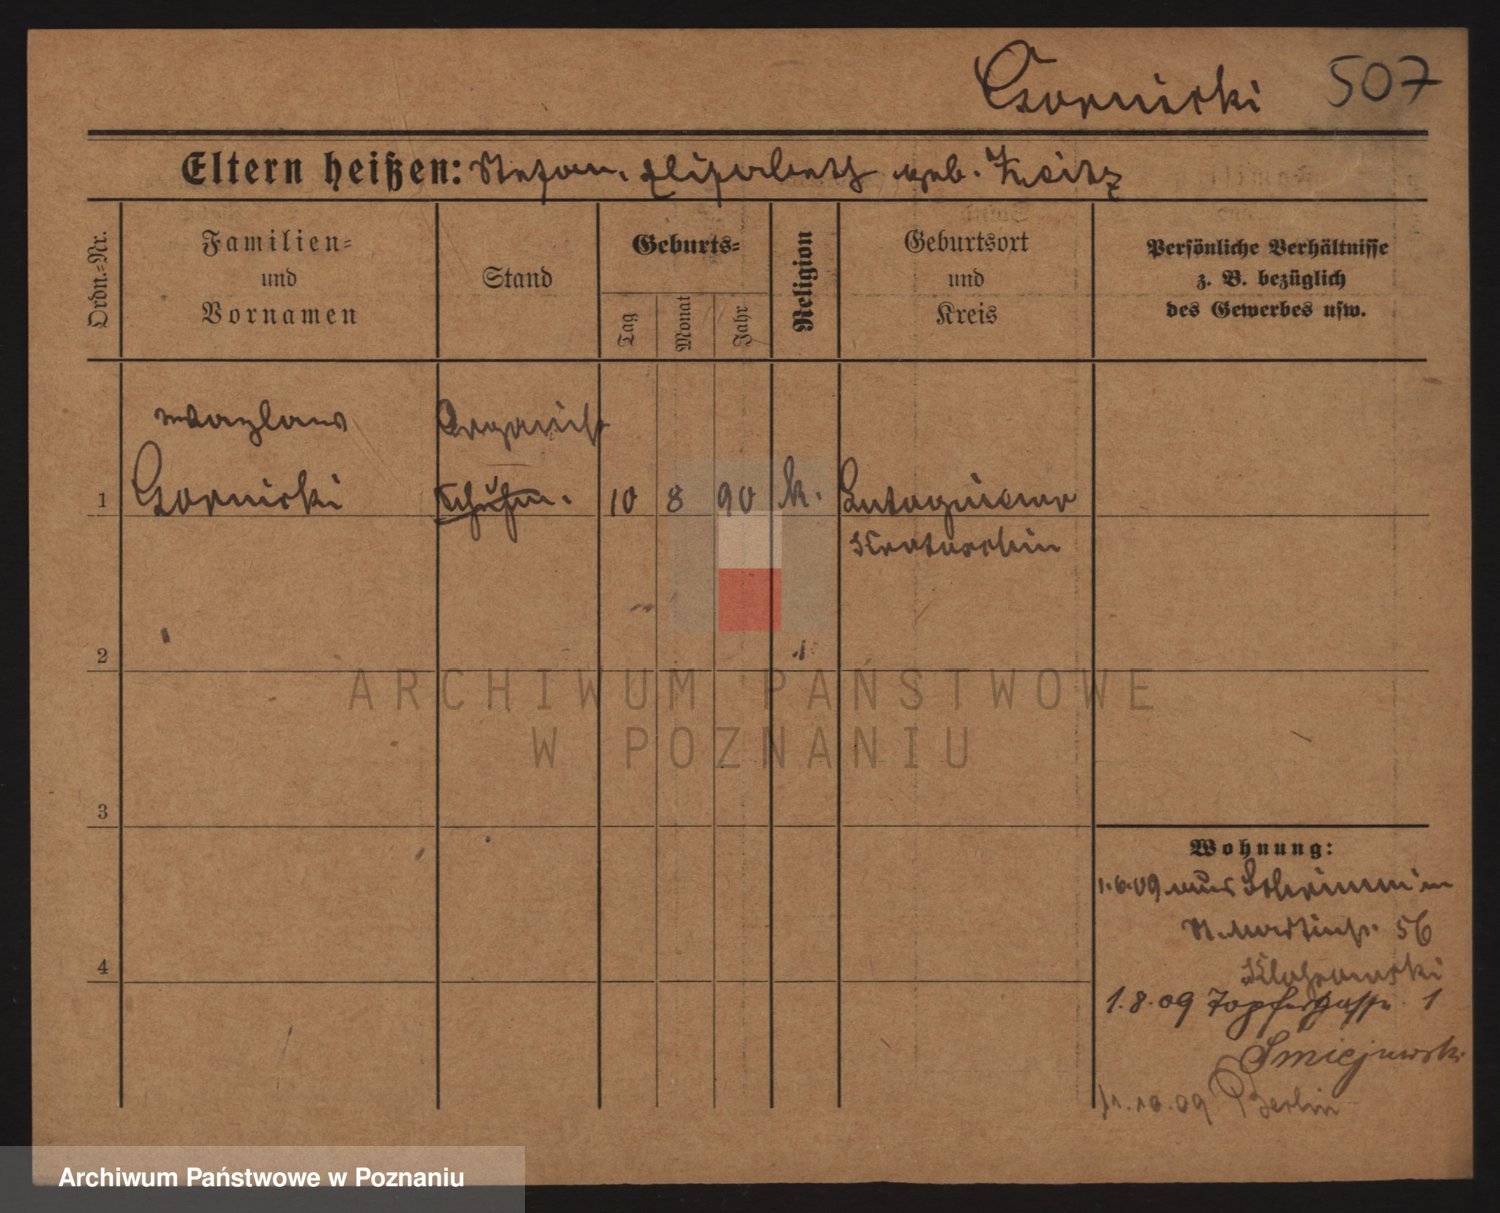 Czornicki 507
Eltern heißen: Stefan, Elisabeth geb.
Ordn.=Nr.
Familien=
und
Vornamen
Stand
Geburts=
Tag
Monat
Jahr
Religion
Geburtsort
und
Kreis
Persönliche Verhältnisse
z. B. bezüglich
des Gewerbes usw.
Wazlaw Organist
1 Czornicki 10 8 90 k. Lutogniewo
Krotoschin
2
3
4
ARCHIWUM PAŃSTWOWE
W POZNANIU
Wohnung:
1.6.09 aus Schrimm in
St. Martinstr. 56
1.8.09 Töpfergasse 1
Smiejewski
1.10.09 Berlin
Archiwum Państwowe w Poznaniu